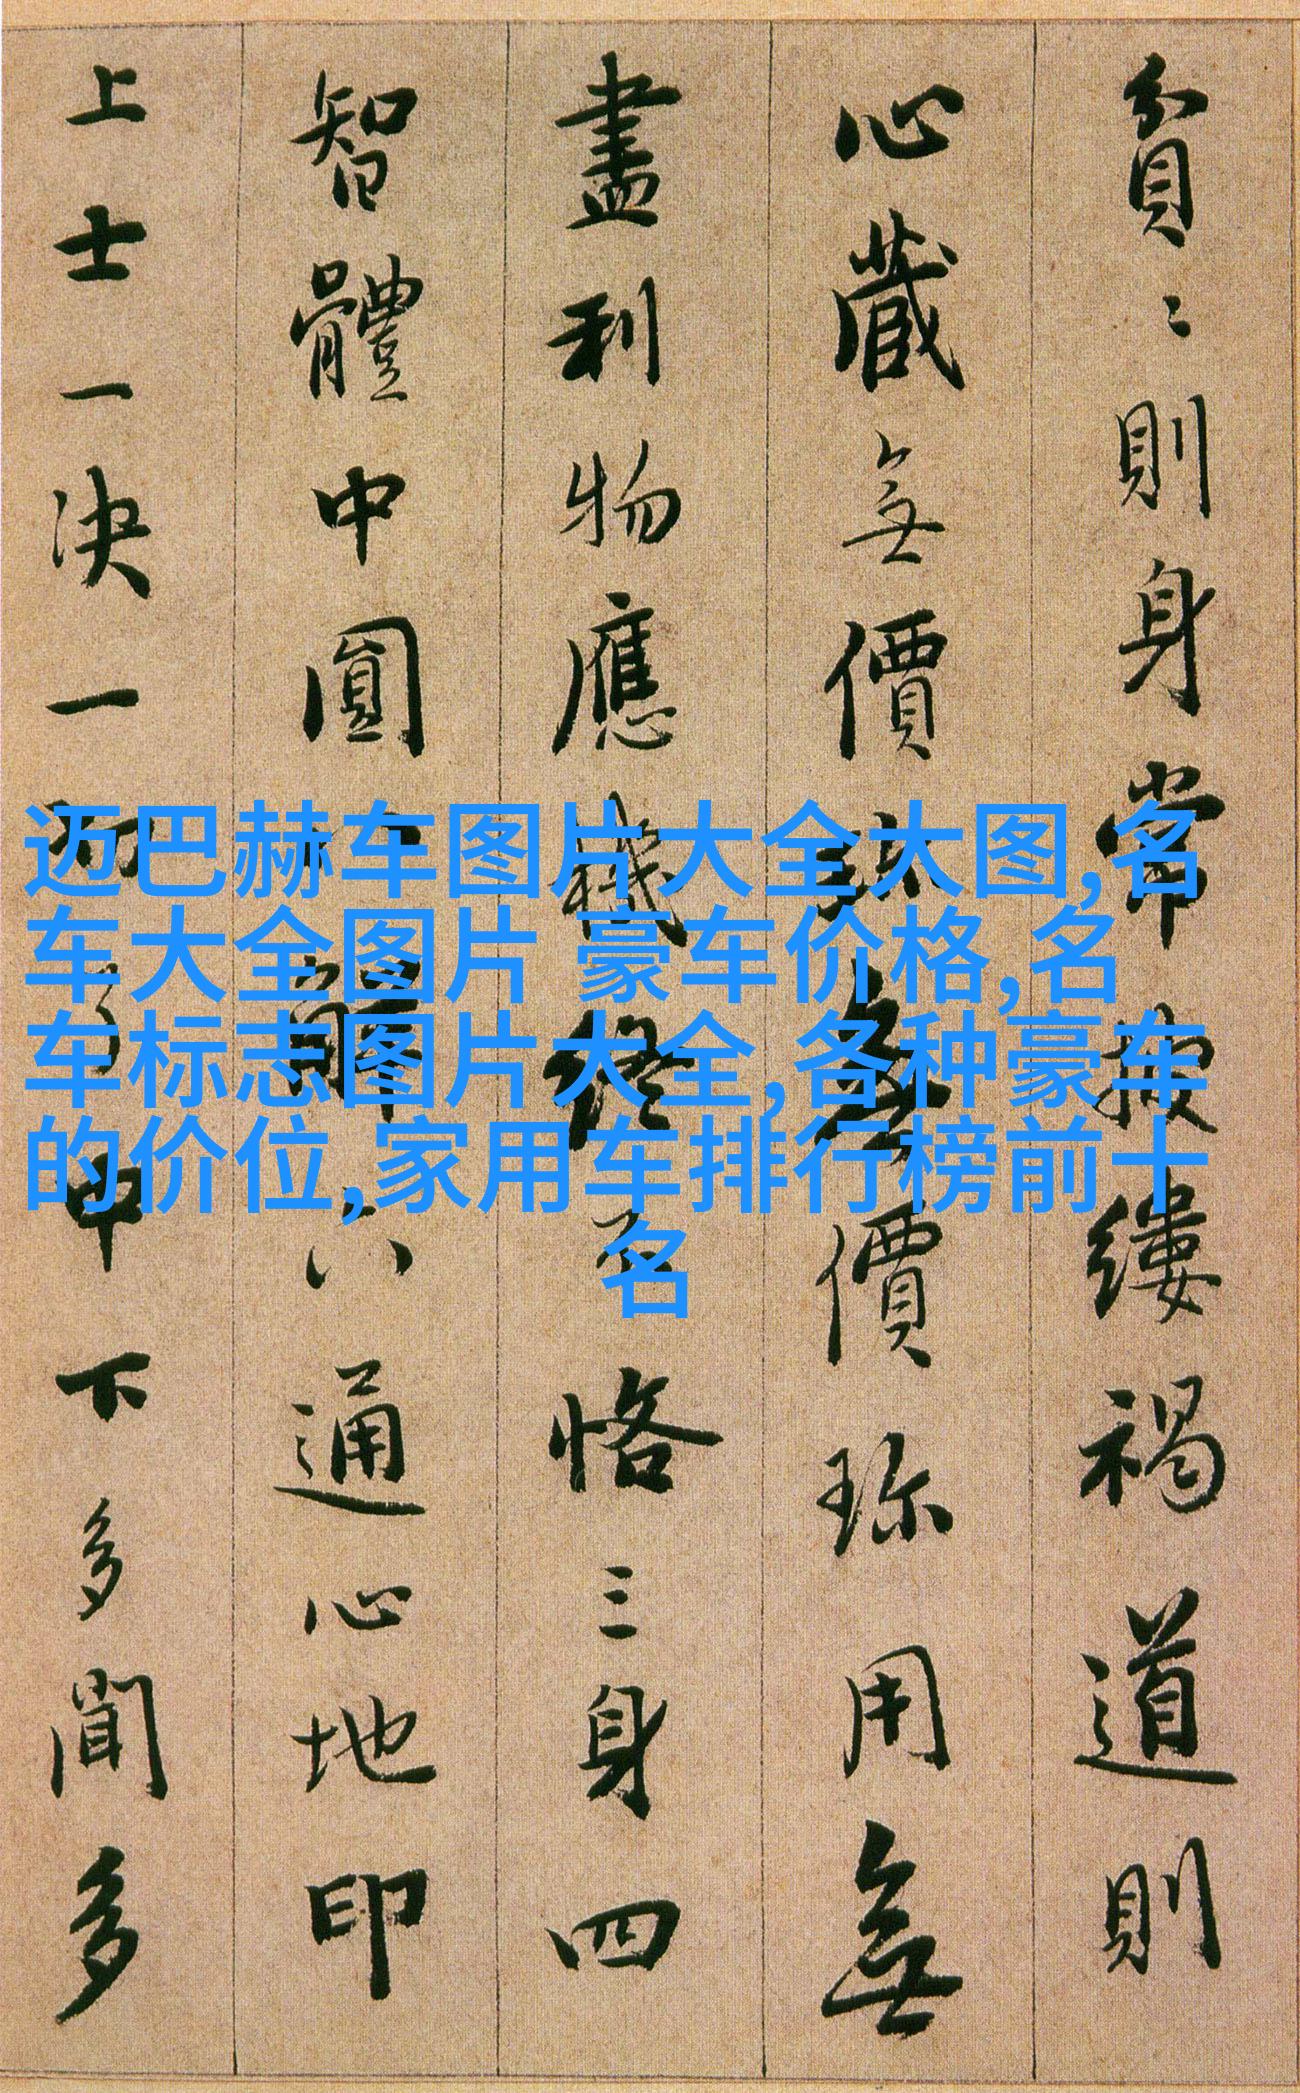 貧〻則身常披縷褐道則
心藏無價珎無價珎用無
盡利物應機終不恪三身四
智體中圓八解六通心地印
上士一决一切了中下多聞多
迈巴赫车图片大全大图,名
车大全图片 豪车价格,名
车标志图片大全,各种豪车
的价位,家用车排行榜前十
名